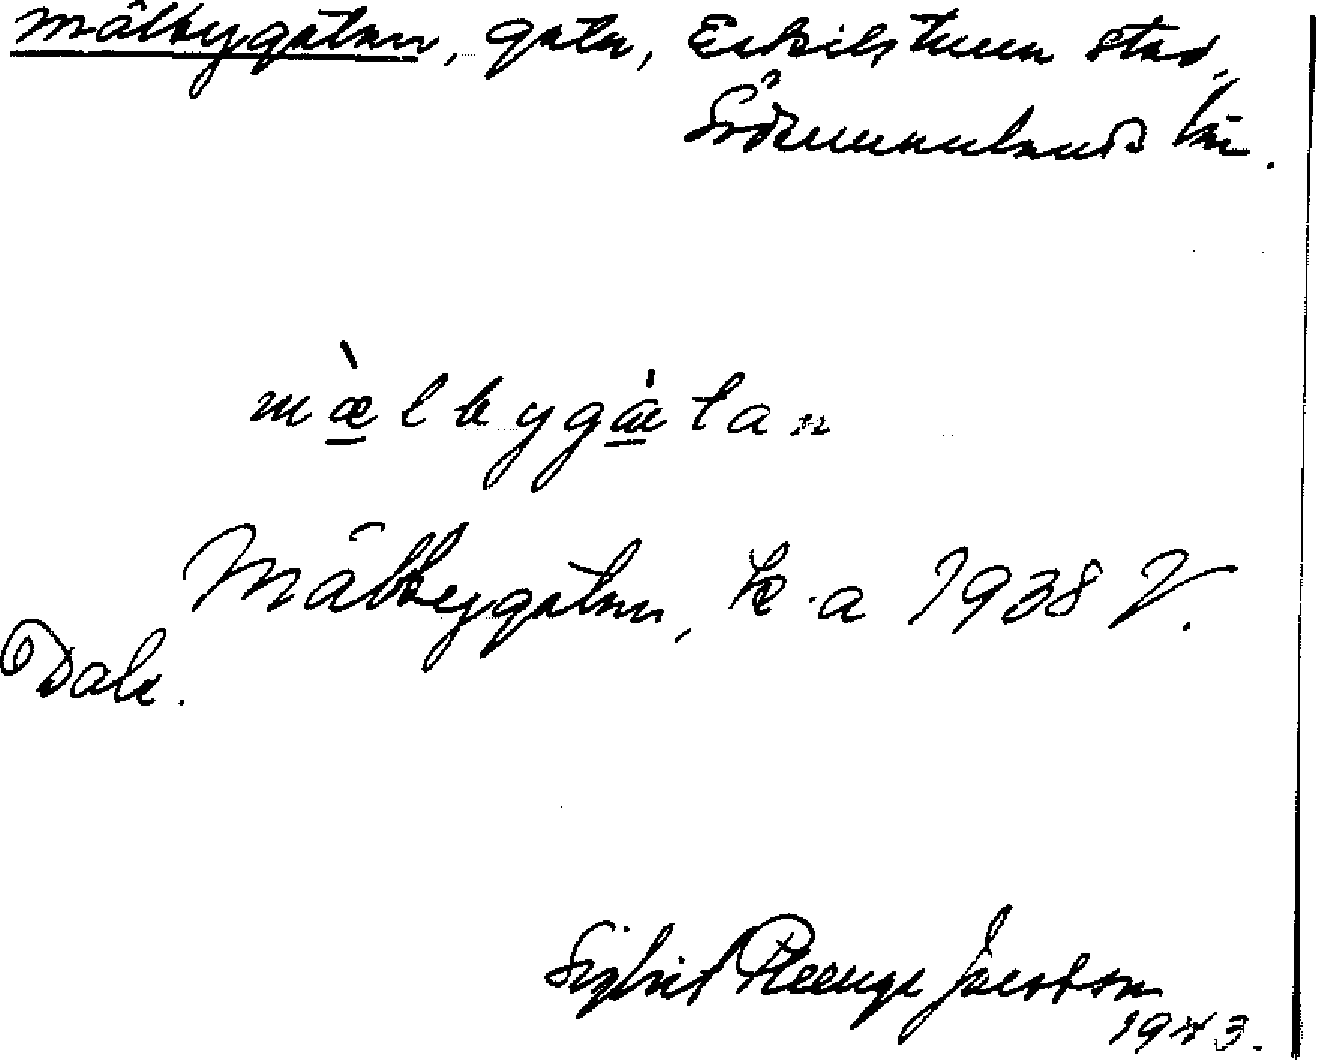 Mälbygatan, gata, Eskilstuna stad,
Södermanlands län.
mæ̀lbygàtan
Mälbygatan, k.a 1938 V.
Dale.
Sigbrit Plænge Jacobson
1943.